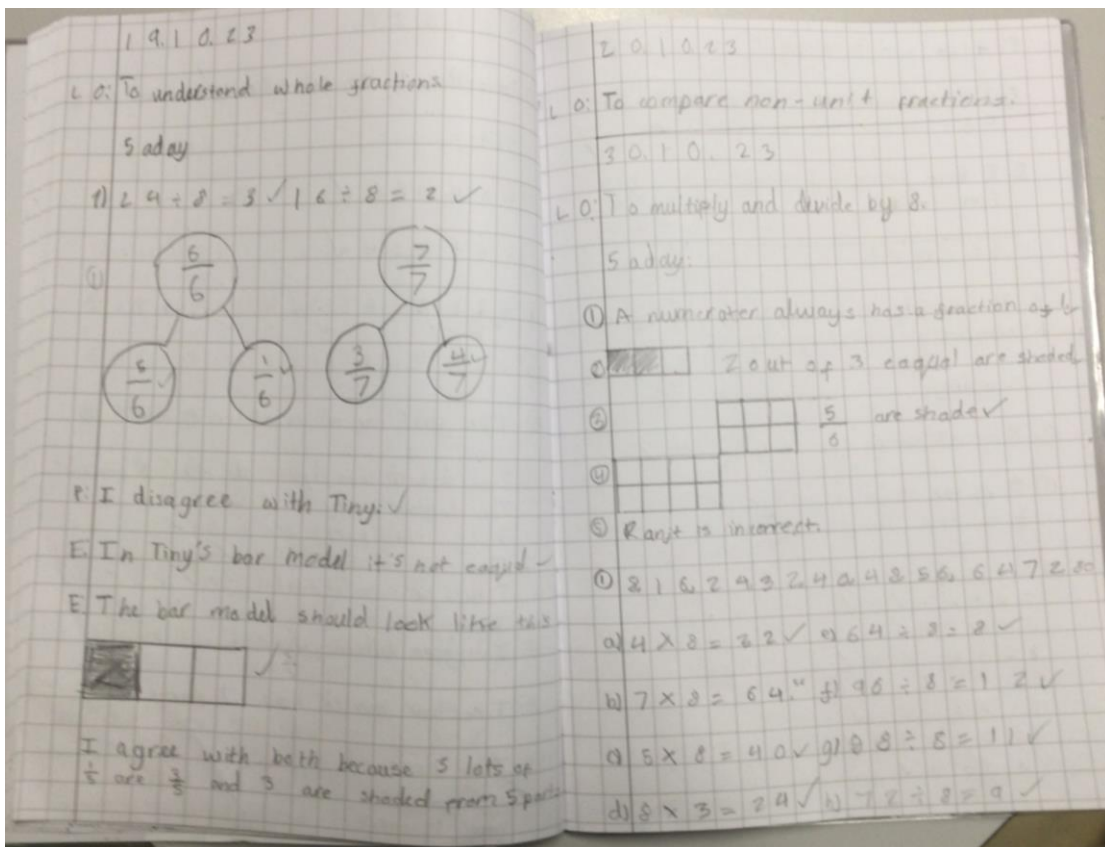 19.10.23
LO: To understand whole fractions.
5 a day
1) 24 ÷ 8 = 3 ✓ 16 ÷ 8 = 2 ✓
①
6/6
7/7
5/6 ✓
1/6 ✓
3/7
4/7 ✓
P: I disagree with Tiny. ✓
E. In Tiny's bar model it's not
E. The bar model should look like this
✓
I agree with both because 3 lots of
1/5 are 3/5 and 3 are shaded from 5 parts
20.10.23
LO: To compare non-unit fractions.
30.10.23
LO: To multiply and divide by 8.
5 a day:
① A numerator always has a fraction of
2 out of 3 eaqual are shaded
③ 5/6 are shade ✓
④
⑤ Ranjt is incorrect.
① 8 16 24 32 40 48 56 64 72 80
a) 4 × 8 = 32 ✓ e) 64 ÷ 8 = 8 ✓
b) 7 × 8 = 64. f) 96 ÷ 8 = 12 ✓
c) 5 × 8 = 40 ✓ g) 88 ÷ 8 = 11 ✓
d) 8 × 3 = 24 ✓ h) 72 ÷ 8 = 9 ✓